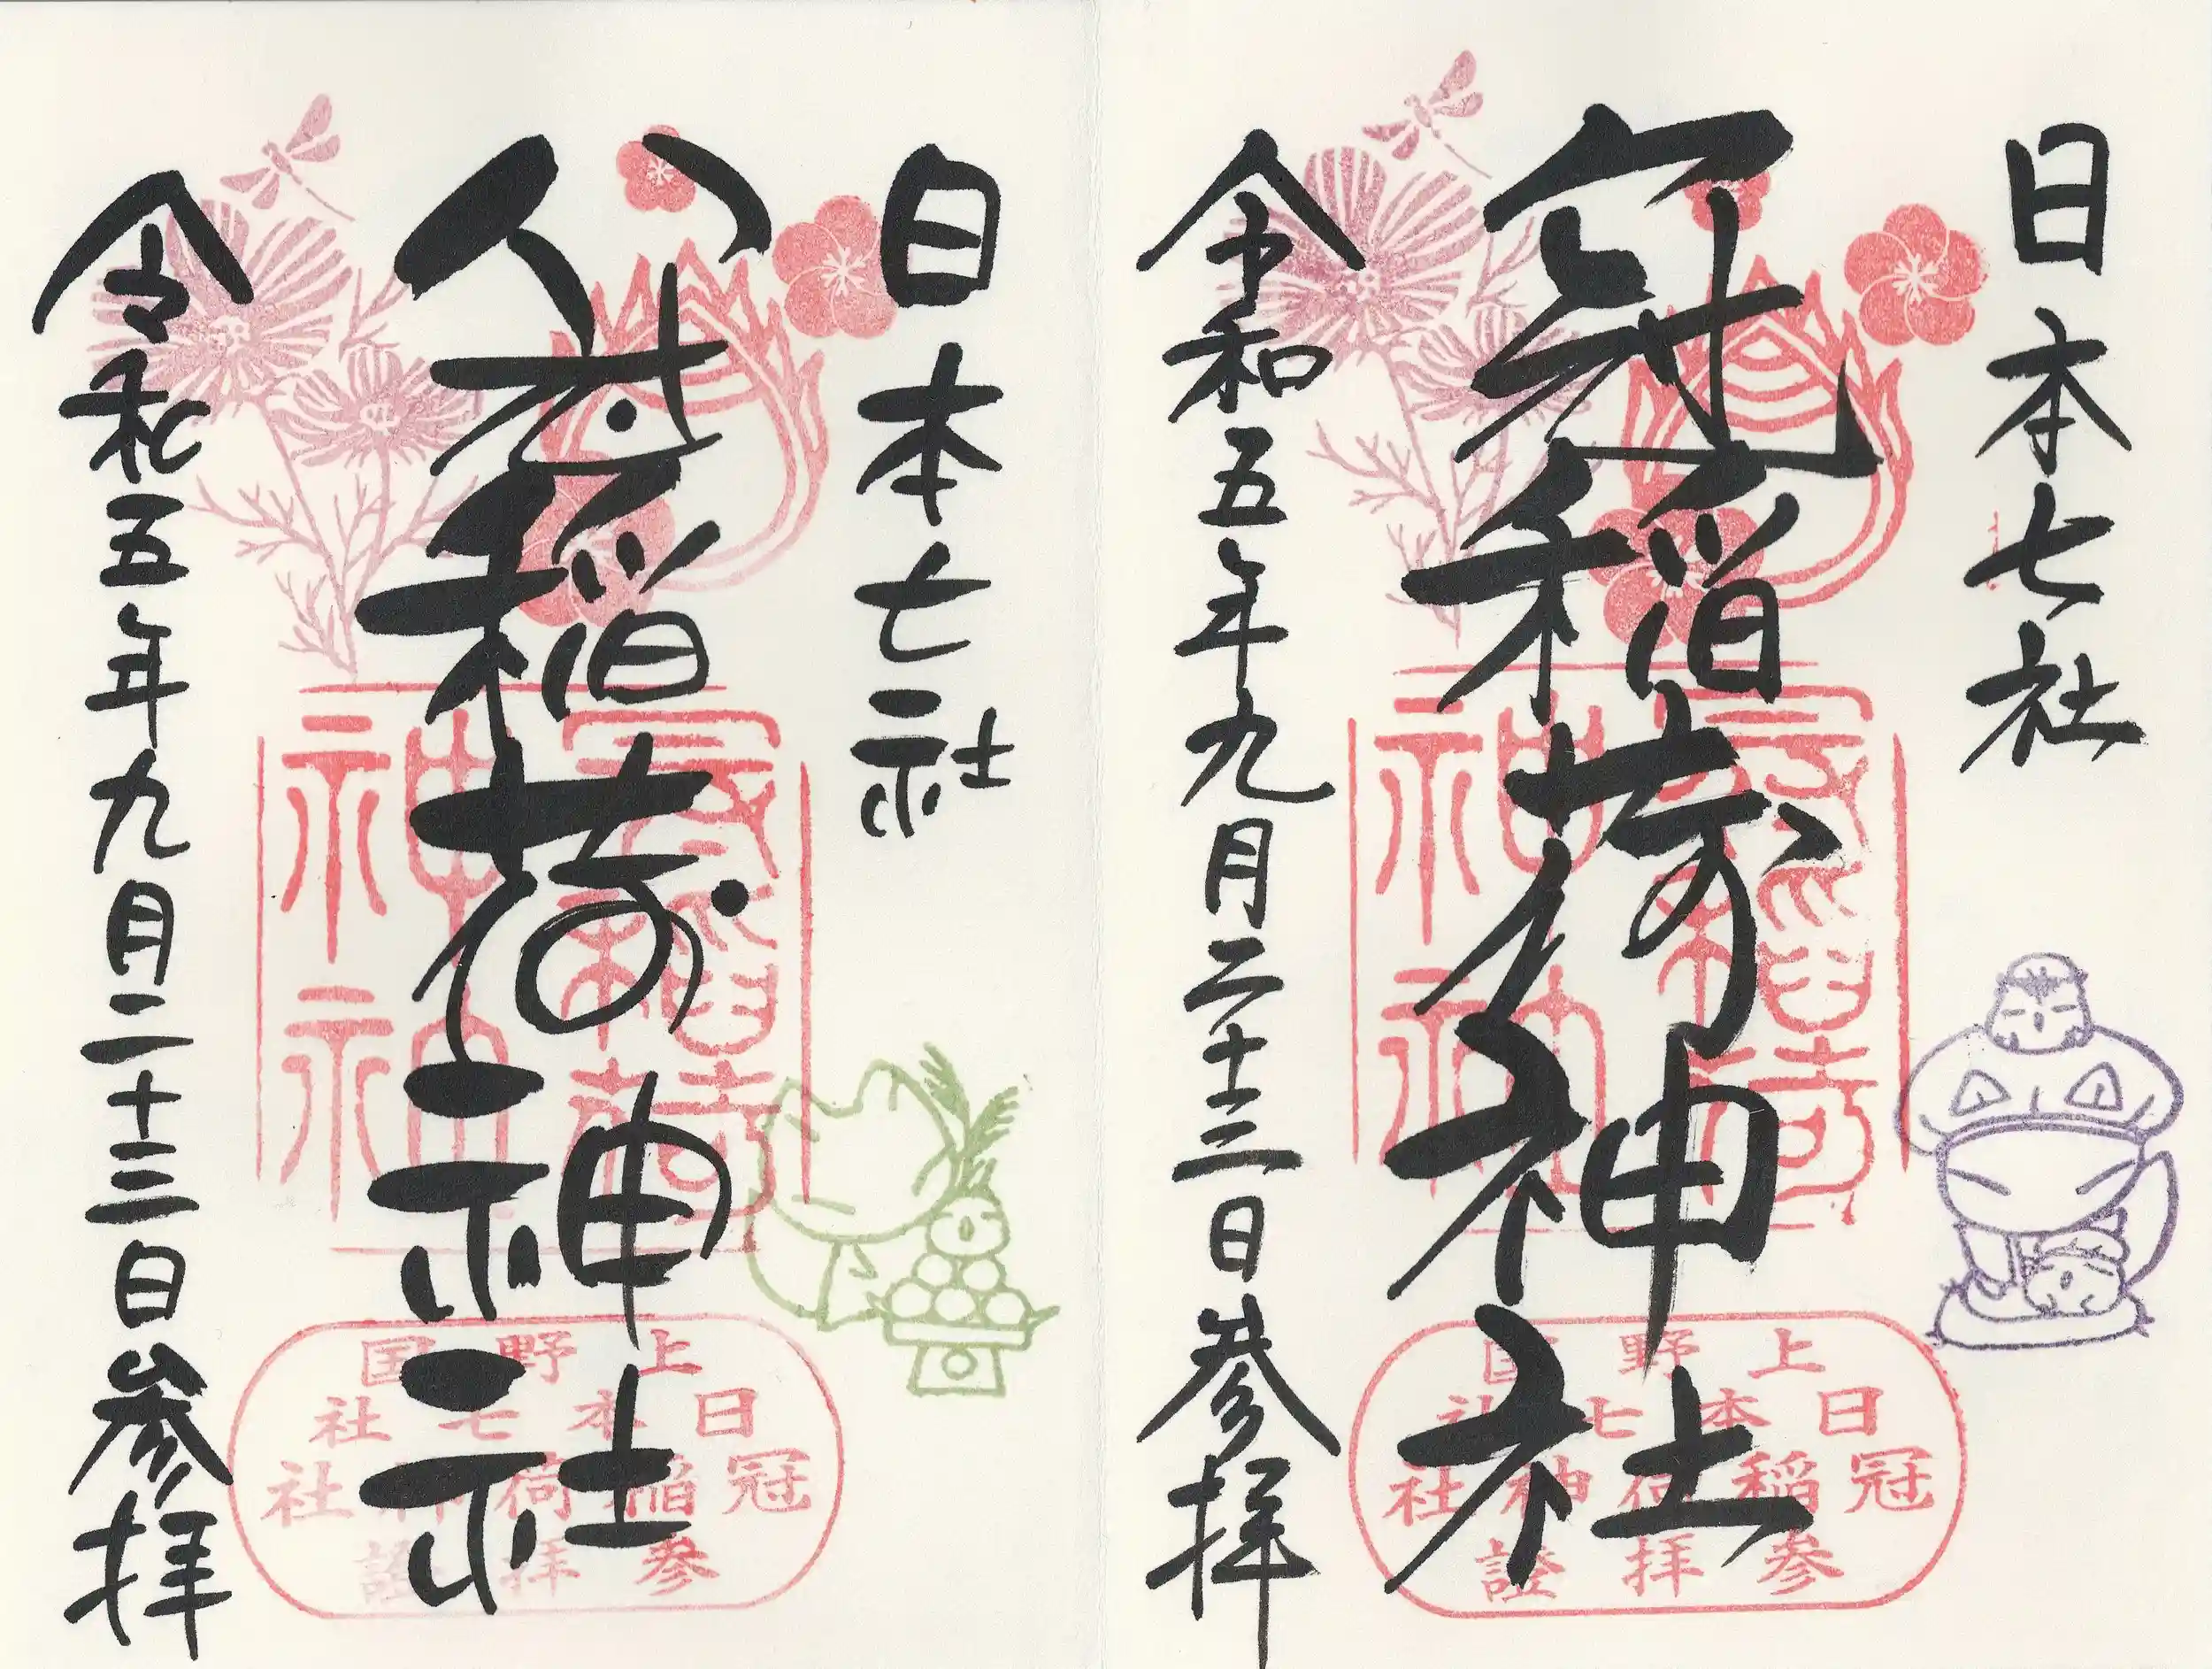 日本七社
冠稲荷神社
令和五年九月二十三日参拝
冠稲荷
神社
上野国
日本七社
冠稲荷神社
参拝證
日本七社
冠稲荷神社
令和五年九月二十三日参拝
冠稲荷
神社
上野国
日本七社
冠稲荷神社
参拝證